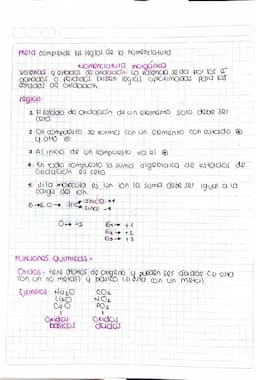 Meta comprende las reglas de la nomenclatura
Nomenclatura inorgánica
Valencia y estados de oxidación: La valencia se da por los e⁻
ganados o perdidos. Existen reglas aproximadas para los
estados de oxidación.
reglas:
1 El estado de oxidación de un elemento solo debe ser
cero.
2 Un compuesto se forma con un elemento con estado ⊕
y otro ⊖
3 Al inicio de un compuesto va el ⊕
4. En todo compuesto la suma algebraica de estados de
oxidación es cero.
5. si la molécula es un ion la suma debe ser igual a la
carga del ion.
H inicio +1
final -1
O → -2
G1 → +1
G2 → +2
G3 → +3
FUNCIONES QUÍMICAS =
Oxidos - tene átomos de oxígeno y pueden ser ácidos (si esta
con un no metal) y básico (si esta con un metal).
Ejemplos: Na2O CO2
Li2O NO2
CaO
Oxidos Oxidos
básicos ácidos